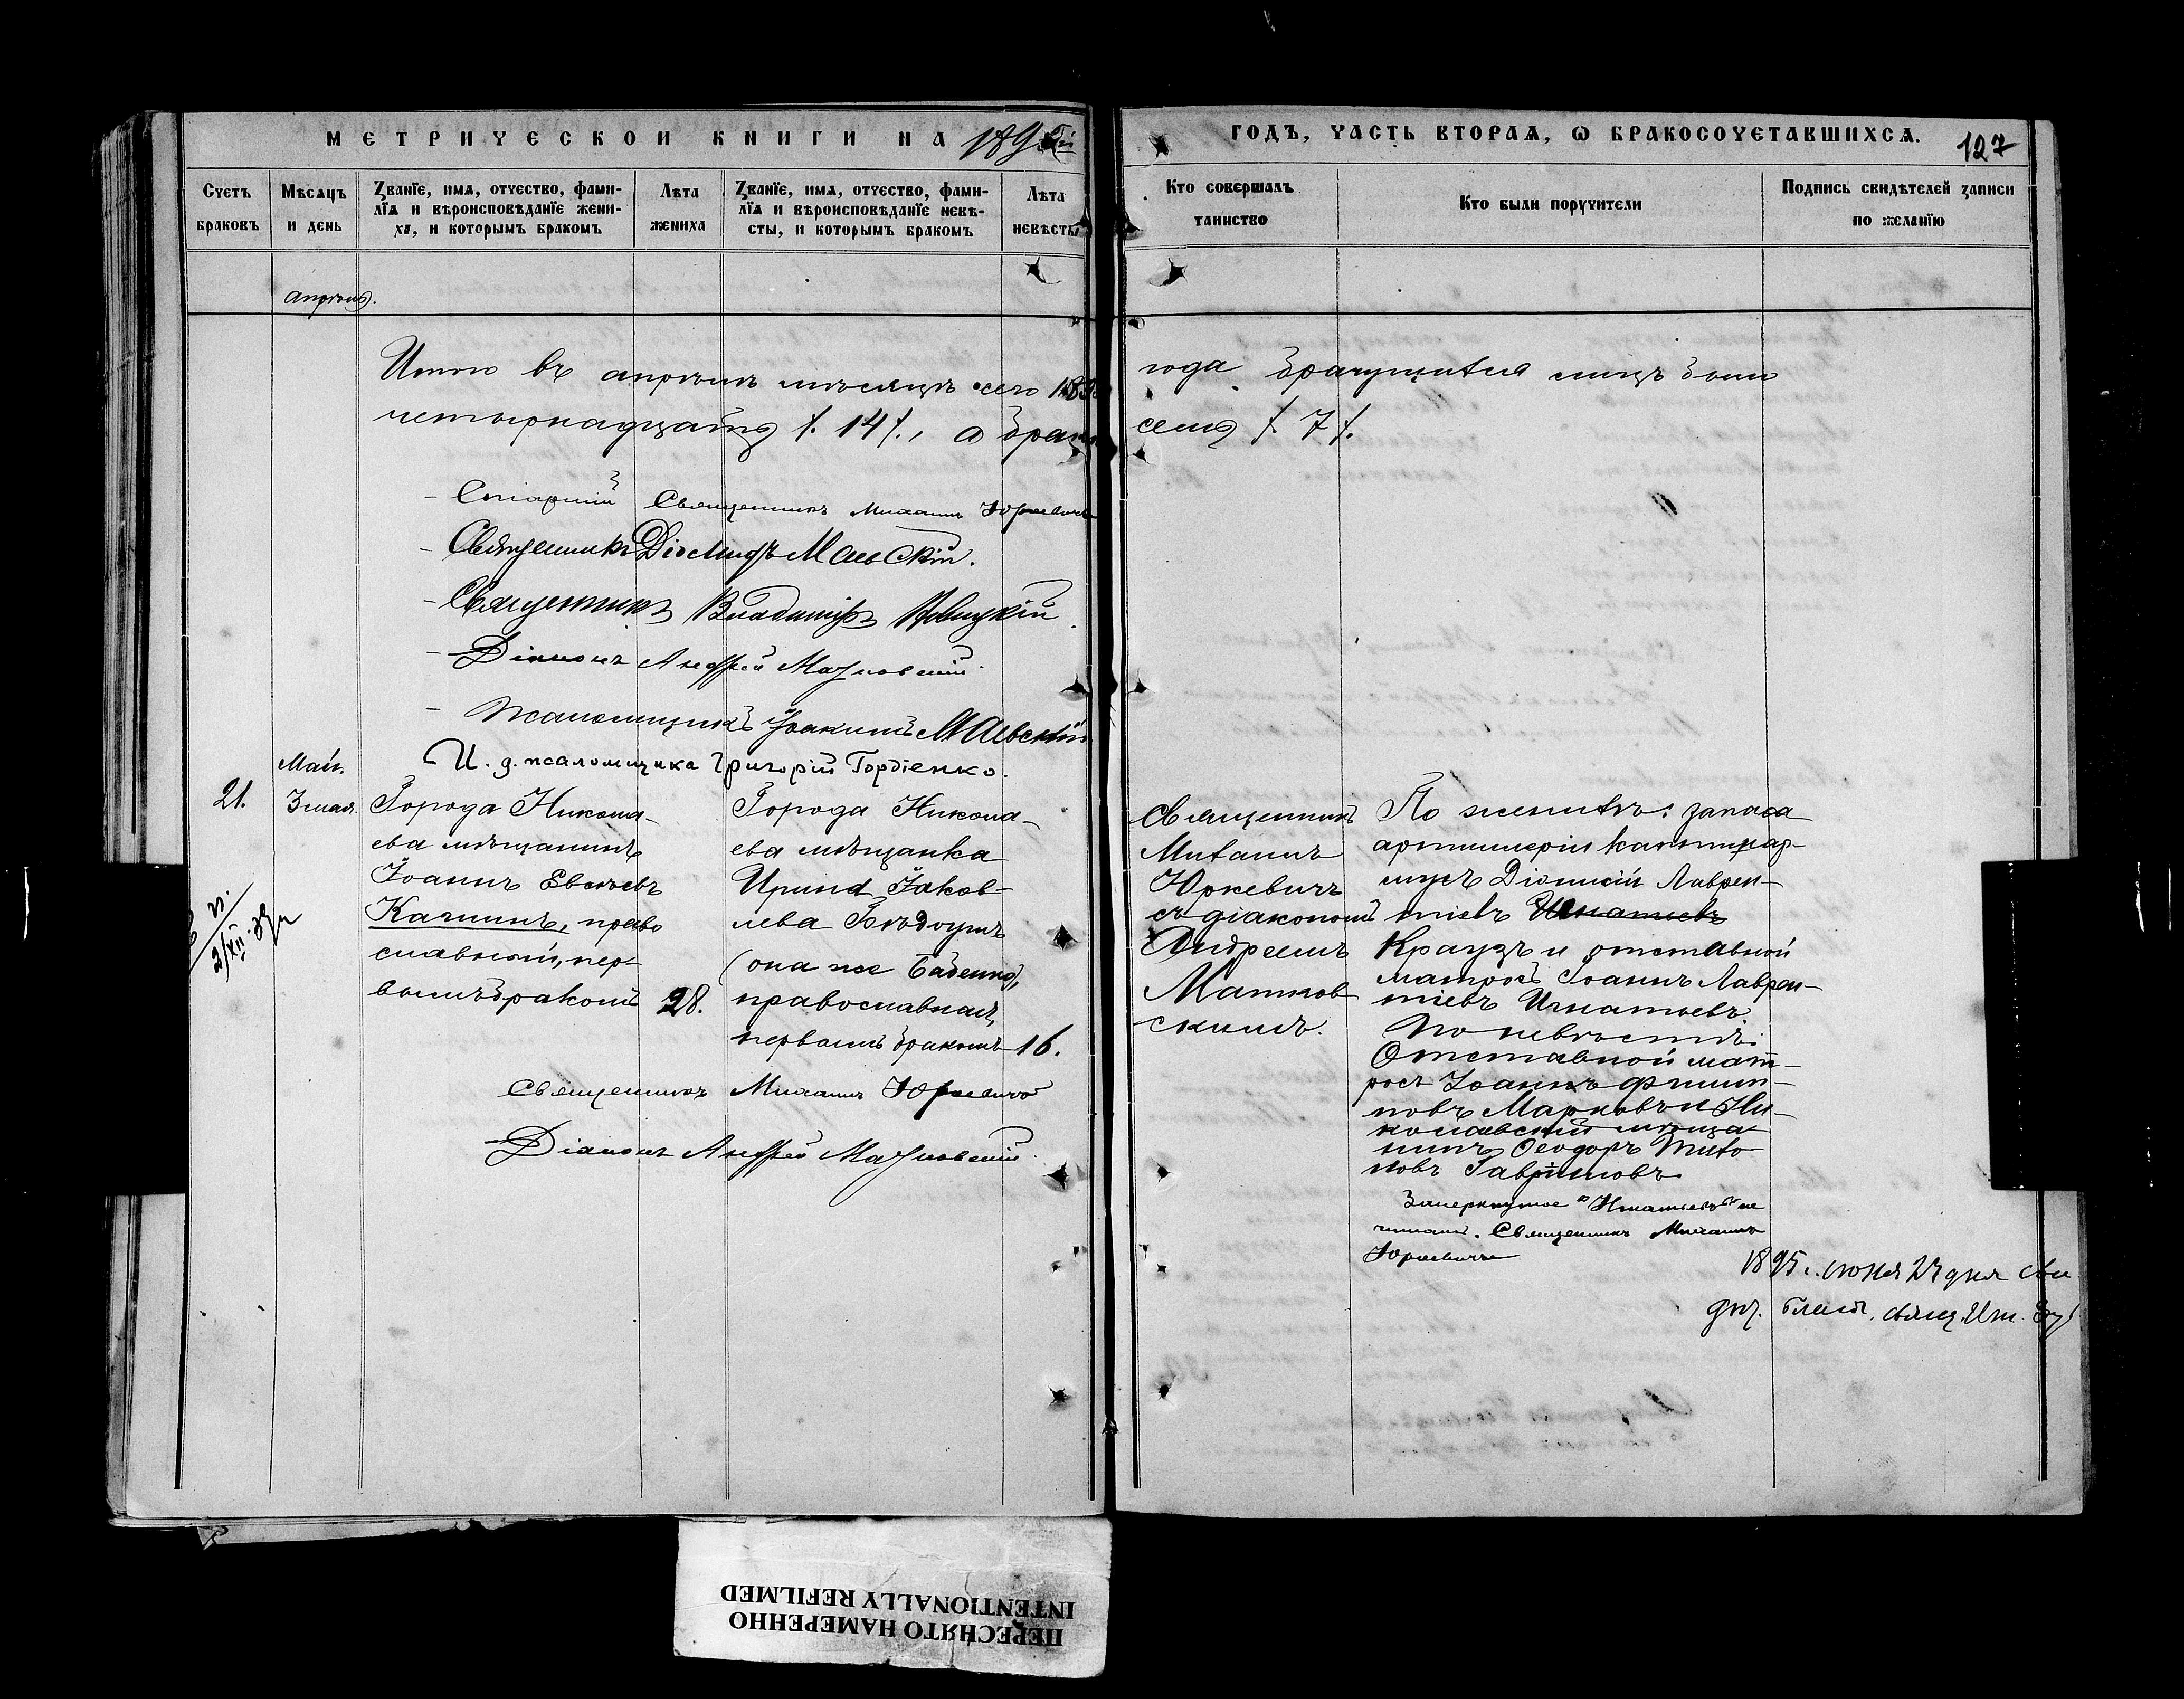 МЕТРИЧЕСКОЙ КНИГИ НА 189
ГОДЪ, ЧАСТЬ ВТОРАѦ, Ѡ БРАКОСОЧЕТАВШИХСѦ.
127
Счетъ браковъ
Мѣсѧцъ и день
Званїе, имѧ, отчество, фами-
лїѧ и вѣроисповѣданїе жени-
ха, и которымъ бракомъ
Лѣта жениха
Званїе, имѧ, отчество, фами-
лїѧ и вѣроисповѣданїе невѣ-
сты, и которымъ бракомъ
Лѣта невѣсты
Кто совершалъ
таинство
Кто были поручители
Подпись свидѣтелей записи
по желанїю
апрѣль.
Итого въ апрѣлѣ мѣсяцѣ сего 189
года брачущихся лицъ было
четырнадцать /. 14 /., а брако
семь /. 7 /.
Старшій Священникъ Михаилъ Юркевичъ
Священникъ Діомидъ Маевскій.
Священникъ Владиміръ
Діаконъ Андрей Матковскій
Псаломщикъ Іоакимъ Маевскій
И. д. псаломщика Григорій Гордіенко.
Май.
21.
3 мая.
Города Никола-
ева мѣщанинъ
Іоаннъ Евсѣевъ
Качинъ, право
славный, пер-
вымъ бракомъ
28.
Города Никола-
ева мѣщанка
Ирина Іаков-
лева Бѣдоушъ
(она же Баденко),
православная,
первымъ бракомъ
16.
Священникъ Михаилъ Юркевичъ
Діаконъ Андрей Матковскій.
Священникъ
Михаилъ
Юркевичъ
съ діакономъ
Андреемъ
Матков
скимъ.
По женихѣ: запаса
артиллеріи
Діонисій Лаврен-
тіевъ Игнатьевъ
Краузъ и отставной
матросъ Іоаннъ Лаврен-
тіевъ Игнатьевъ.
По невѣстѣ:
Отставной мат-
росъ Іоаннъ Филип-
повъ Марковъ и Ни-
колаевскій мѣща-
нинъ Ѳеодоръ Тихо-
новъ Гавриловъ.
Зачеркнутое "Игнатьевъ" не
читать. Священникъ Михаилъ
Юркевичъ
1895 г. іюня 27 дня сви
дѣт. Благ. свящ.
ПЕРЕСНЯТО НАМЕРЕННО
INTENTIONALLY REFILMED